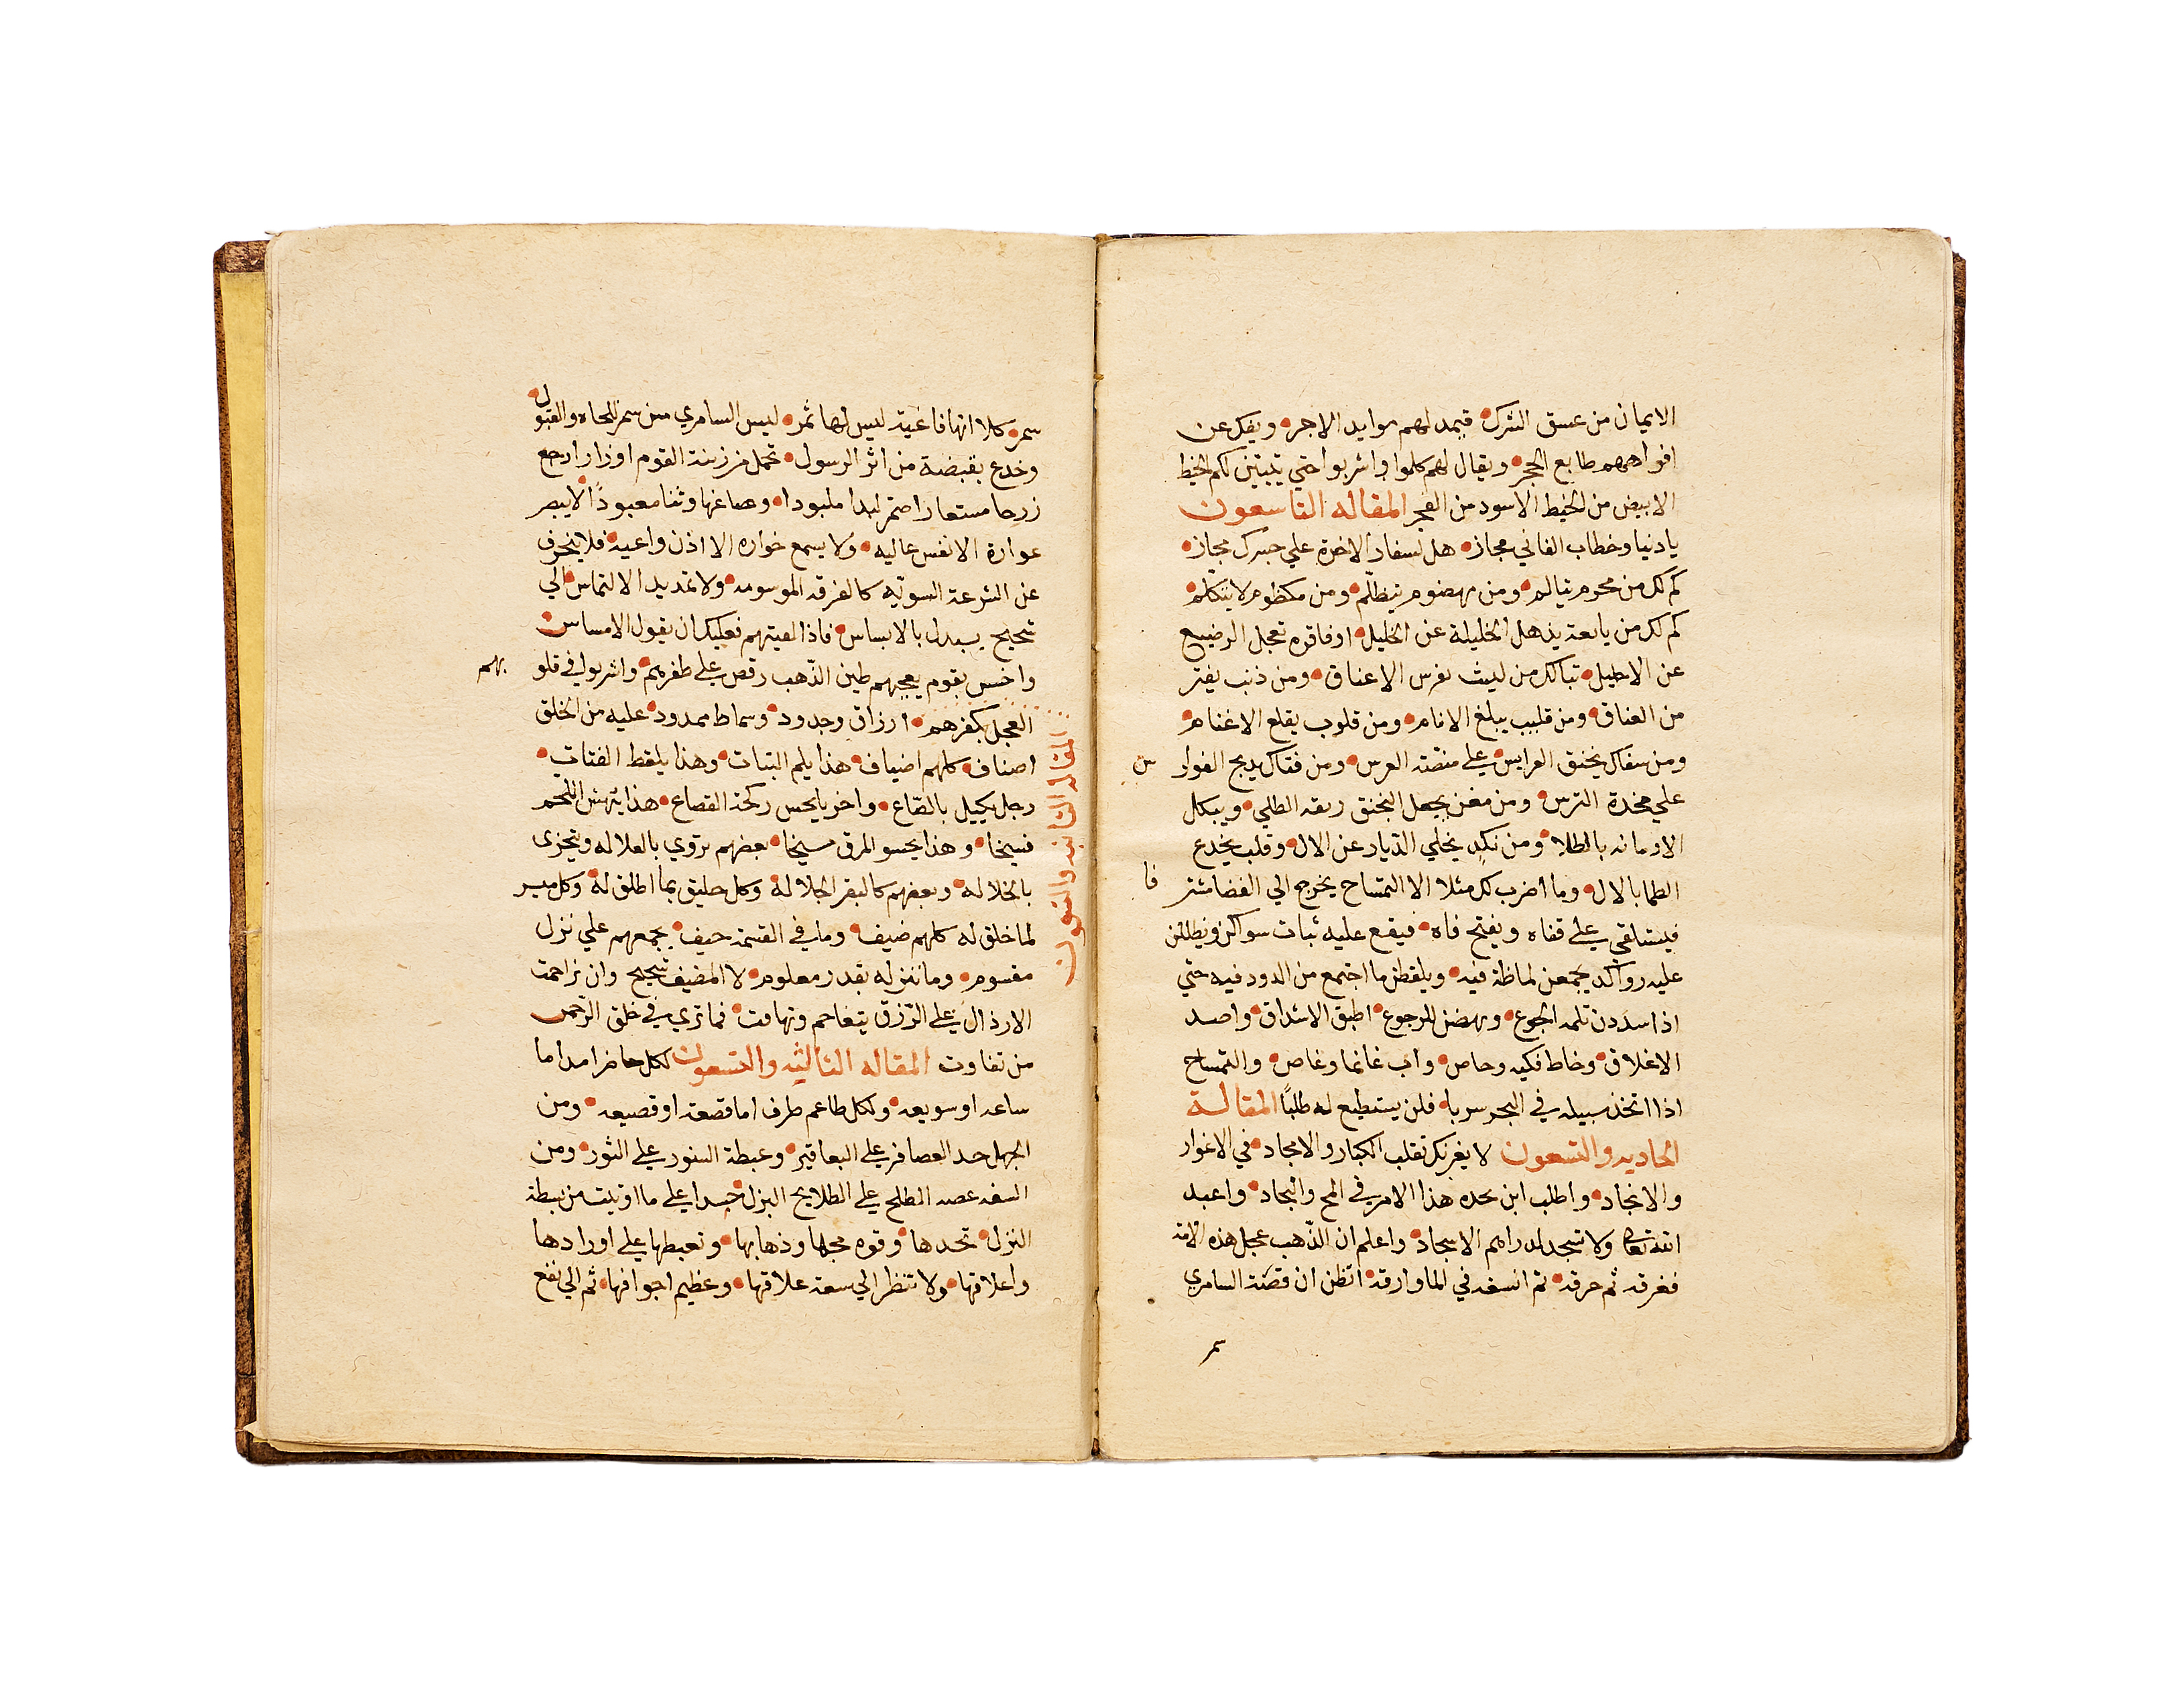 الايمان من عسق الشرك فيمد لهم موايد الاجر ويفك عن
افواههم طابع الحجر ويقال لهم كلوا واشربوا حتي يتبين لكم الخيط
الابيض من الخيط الاسود من الفجر المقاله التاسعون
يا دنيا وخطاب الفاني مجاز هل لسفار الاخرة علي جسرك مجاز
كم لك من محروم يتالم ومن مهضوم يتظلم ومن مكظوم لا يتكلم
كم لك من يابعة يذهل الخليلة عن الخليل او فاقره تعجل الرضيع
عن الاحليل تبا لك من ليث يفرس الاعناق ومن ذئب يفتر
من العناق ومن قليب يبلغ الانام ومن قلوب يقلع الاغنام
ومن سفاك يخنق العرايس علي منصة العرس ومن فتاك يدبح الفوار س
علي مخدة الترس ومن مغن يجعل المخنق ربقه الطلي ويبكل
الاومانه بالطلا ومن نكد يخلي الديار عن الال وقلب يخدع
الظما بالال وما اضرب لك مثلا الا التمساح يخرج الي الفضا مشتر فا
فيستلقي علي قفاه ويفتح فاه فيقع عليه نبات سواكن ويظللن
عليه رواكد يجمعن لماظة فيه ويلقطن ما اجتمع من الدود فيه حتي
اذا سددن ثلمه الجوع ونهضن للرجوع اطبق الاشداق واصد
الاغلاق وخاط فكيه وحاص واب غانما وغاص والتمساح
اذا اتخذ سبيله في البحر سربا فلن يستطيع له طلبًا المقالة
الحاديه والتسعون لا يغرنك تقلب الكبار والامجاد في الاغوار
والانجاد واطلب ابن بجده هذا الامر في المح والبجاد واعبد
الله تعالى ولا تسجد للدراهم الاسجاد واعلم ان الذهب عجل هذه الامة
ففرقه ثم حرقه ثم انسفه في الما وارقه اتظن ان قصة السامري
سمر
سمر كلا انها فاغية ليس لها ثمر ليس السامري من سمر للجاه والقبول
وخدع بقبضة من اثر الرسول تحمل من زينة القوم اوزارا رجع
زرحا مستعارا ضم لبدا ملبودا وصاغها وثنا معبودًا لا يبصر
عواره الا نفس عاليه ولا يسمع خواره الا اذن واعيه فلا ينحرف
عن الشرعة السويه كالفرقه الموسومه ولا تمد يد الالتماس الي
شحيح يبدل بالابساس فاذا لقيتهم فعليك ان تقول لا مساس
واخسس بقوم يعجبهم طين الذهب رقص علي طفرهم واشربوا في قلو بهم
العجل بكفرهم ارزاق وجدود وسماط ممدود عليه من الخلق
المقاله الثانيه والتسعون
اصناف كلهم اضياف هذا يلم التبنات وهذا يلقط الفتات
رجل يكيل بالصاع واخر يلحس ركحة القصاع هذا ينهش اللحم
فسيخا وهذا يحسو المرق مسيخا بعضهم يروي بالعلاله ويتجزى
بالخلاله وبعضهم كالبقر الجلاله وكل حليق بما اطلق له وكل ميسر
لما خلق له كلهم ضيف وما في القسمة حيف يجمعهم علي نزل
مقسوم وما ننزله بقدر معلوم لا المضيف شحيح وان تزاحمت
الارذال علي الرزق يتفاحم وتهافت فما تري في خلق الرحمن
من تفاوت المقاله الثالثه والتسعون لكل حاضر امد اما
ساعه او سويعه ولكل طاعم ظرف اما قصعة او قصيعه ومن
الجهل حسد العصافر علي البعاقير وغبطة السنور علي الثور ومن
السفه غصه الطلح علي الطلايح البزل حسدا علي ما اوتيت من بسطة
النزل تحسدها وقوه مجلها وذهابها وتغبطها علي اورادها
واعلافها ولا تنظر الي سعة علاقها وعظيم اجوافها ثم الي نفع